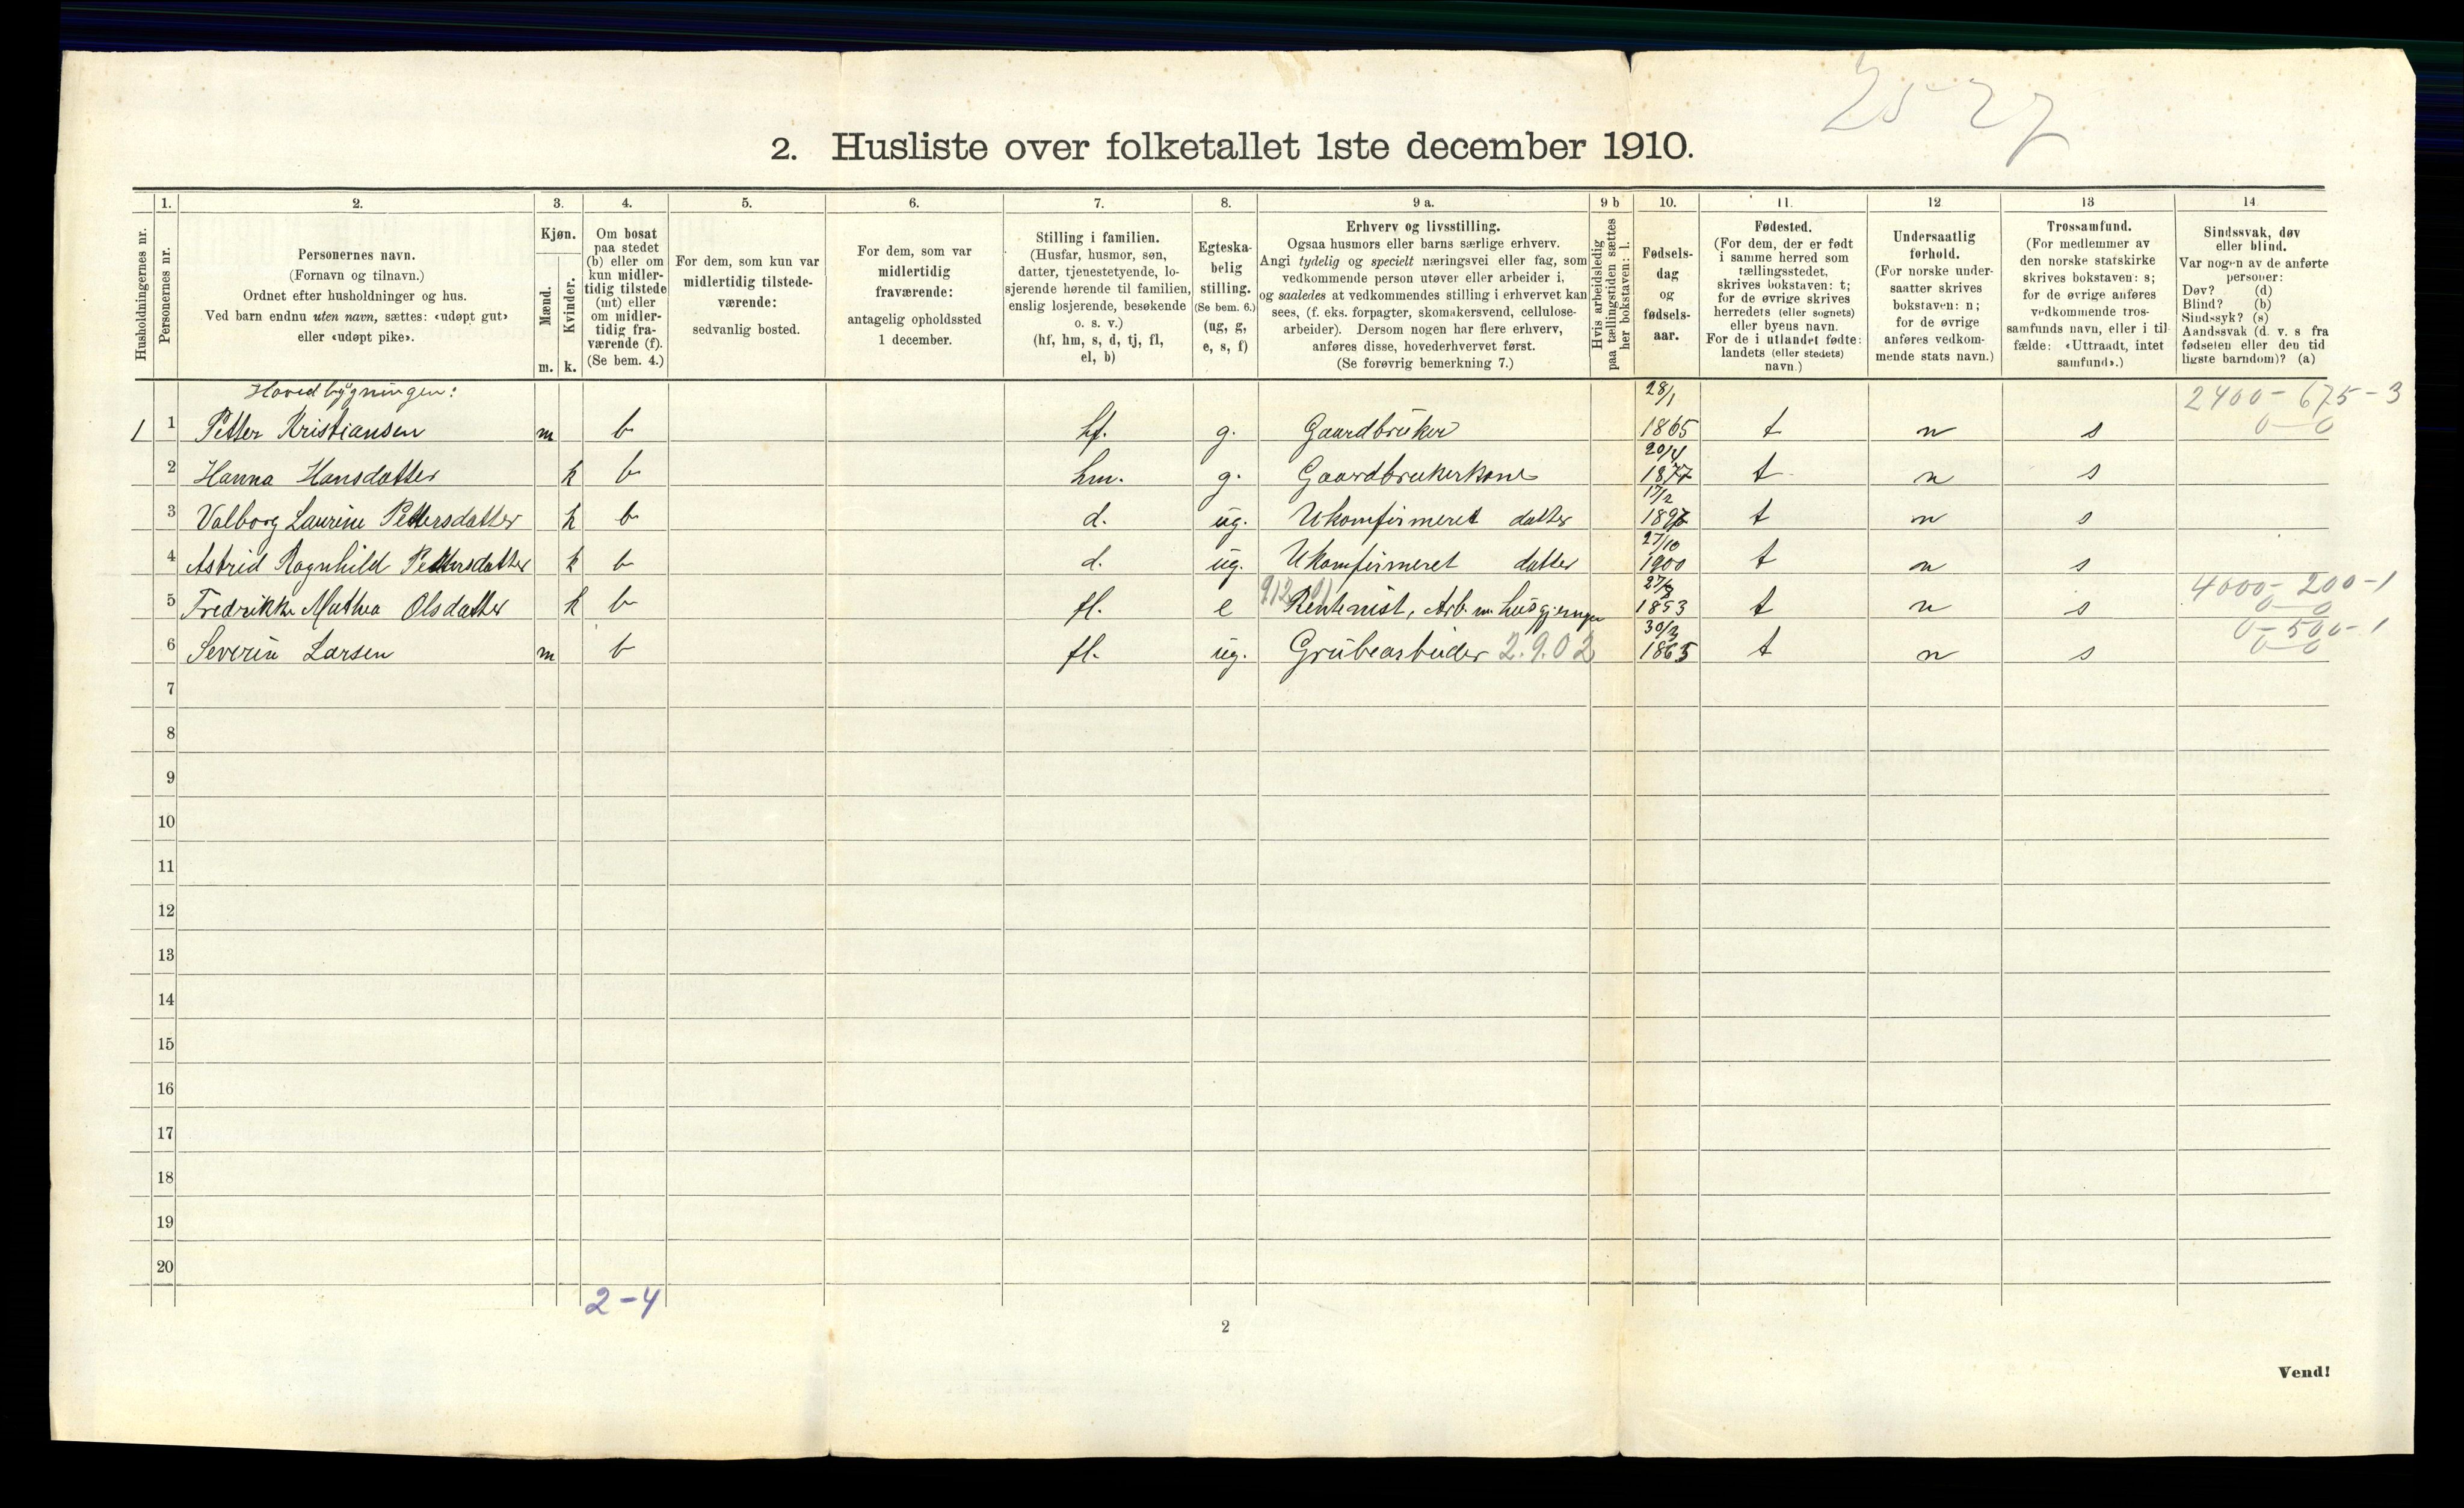 25-27
2. Husliste over folketallet 1ste december 1910.
1. 2. 3. 4. 5. 6. 7. 8. 9 a. 9 b 10. 11. 12 13 14
Husholdningernes nr.
Personernes nr.
Personernes navn.
(Fornavn og tilnavn.)
Ordnet efter husholdninger og hus.
Ved barn endnu uten navn, sættes: «udøpt gut»
eller «udøpt pike».
Kjøn.
Mænd.
Kvinder.
m. k.
Om bosat
paa stedet
(b) eller om
kun midler-
tidig tilstede
(mt) eller
om midler-
tidig fra-
værende (f).
(Se bem. 4.)
For dem, som kun var
midlertidig tilstede-
værende:
sedvanlig bosted.
For dem, som var
midlertidig
fraværende:
antagelig opholdssted
1 december.
Stilling i familien.
(Husfar, husmor, søn,
datter, tjenestetyende, lo-
sjerende hørende til familien,
enslig losjerende, besøkende
o. s. v.)
(hf, hm, s, d, tj, fl,
el, b)
Egteska-
belig
stilling.
(Se bem. 6.)
(ug, g,
e, s, f)
Erhverv og livsstilling.
Ogsaa husmors eller barns særlige erhverv.
Angi tydelig og specielt næringsvei eller fag, som
vedkommende person utøver eller arbeider i,
og saaledes at vedkommendes stilling i erhvervet kan
sees, (f. eks. forpagter, skomakersvend, cellulose-
arbeider). Dersom nogen har flere erhverv,
anføres disse, hovederhvervet først.
(Se forøvrig bemerkning 7.)
Hvis arbeidsledig
paa tællingstiden sættes
her bokstaven: l.
Fødsels-
dag
og
fødsels-
aar.
Fødested.
(For dem, der er født
i samme herred som
tællingsstedet,
skrives bokstaven: t;
for de øvrige skrives
herredets (eller sognets)
eller byens navn.
For de i utlandet fødte:
landets (eller stedets)
navn.)
Undersaatlig
forhold.
(For norske under-
saatter skrives
bokstaven: n;
for de øvrige
anføres vedkom-
mende stats navn.)
Trossamfund.
(For medlemmer av
den norske statskirke
skrives bokstaven: s;
for de øvrige anføres
vedkommende tros-
samfunds navn, eller i til-
fælde: «Uttraadt, intet
samfund».)
Sindssvak, døv
eller blind.
Var nogen av de anførte
personer:
Døv? (d)
Blind? (b)
Sindssyk? (s)
Aandssvak (d. v. s. fra
fødselen eller den tid-
ligste barndom)? (a)
Hovedbygningen: 28/1 2400-675-3
1 1 Petter Kristiansen m b hf. g. Gaardbruker 1865 t n s 0-0
20/4
2 Hanna Hansdatter k b hm. g. Gaardbrukerkone 1877 t n s
17/2
3 Valborg Laurine Pettersdatter k b d. ug. Ukomfirmeret datter 1897 t n s
27/10
4 Astrid Ragnhild Pettersdatter k b d. ug. Ukomfirmeret datter 1900 t n s
27/8 4000-200-1
5 Fredrikke Mathea Olsdatter k b fl. e Rentenist, Arb. m. husgjerninger 1853 t n s 0-0
30/3 0-500-1
6 Severin Larsen m b fl. ug. Grubearbeider 2.9.02 1865 t n s 0-0
7
8
9
10
11
12
13
14
15
16
17
18
19
20
2-4
2
Vend!